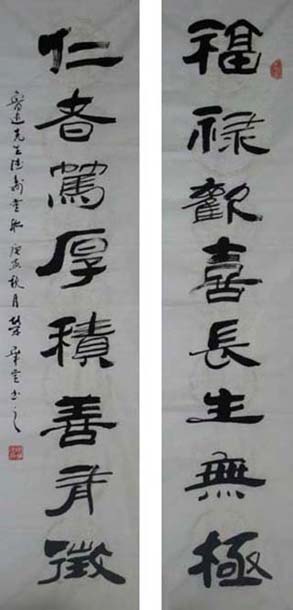 福禄歡喜長生無極
仁者篤厚積善有徵
先生 庚寅秋月